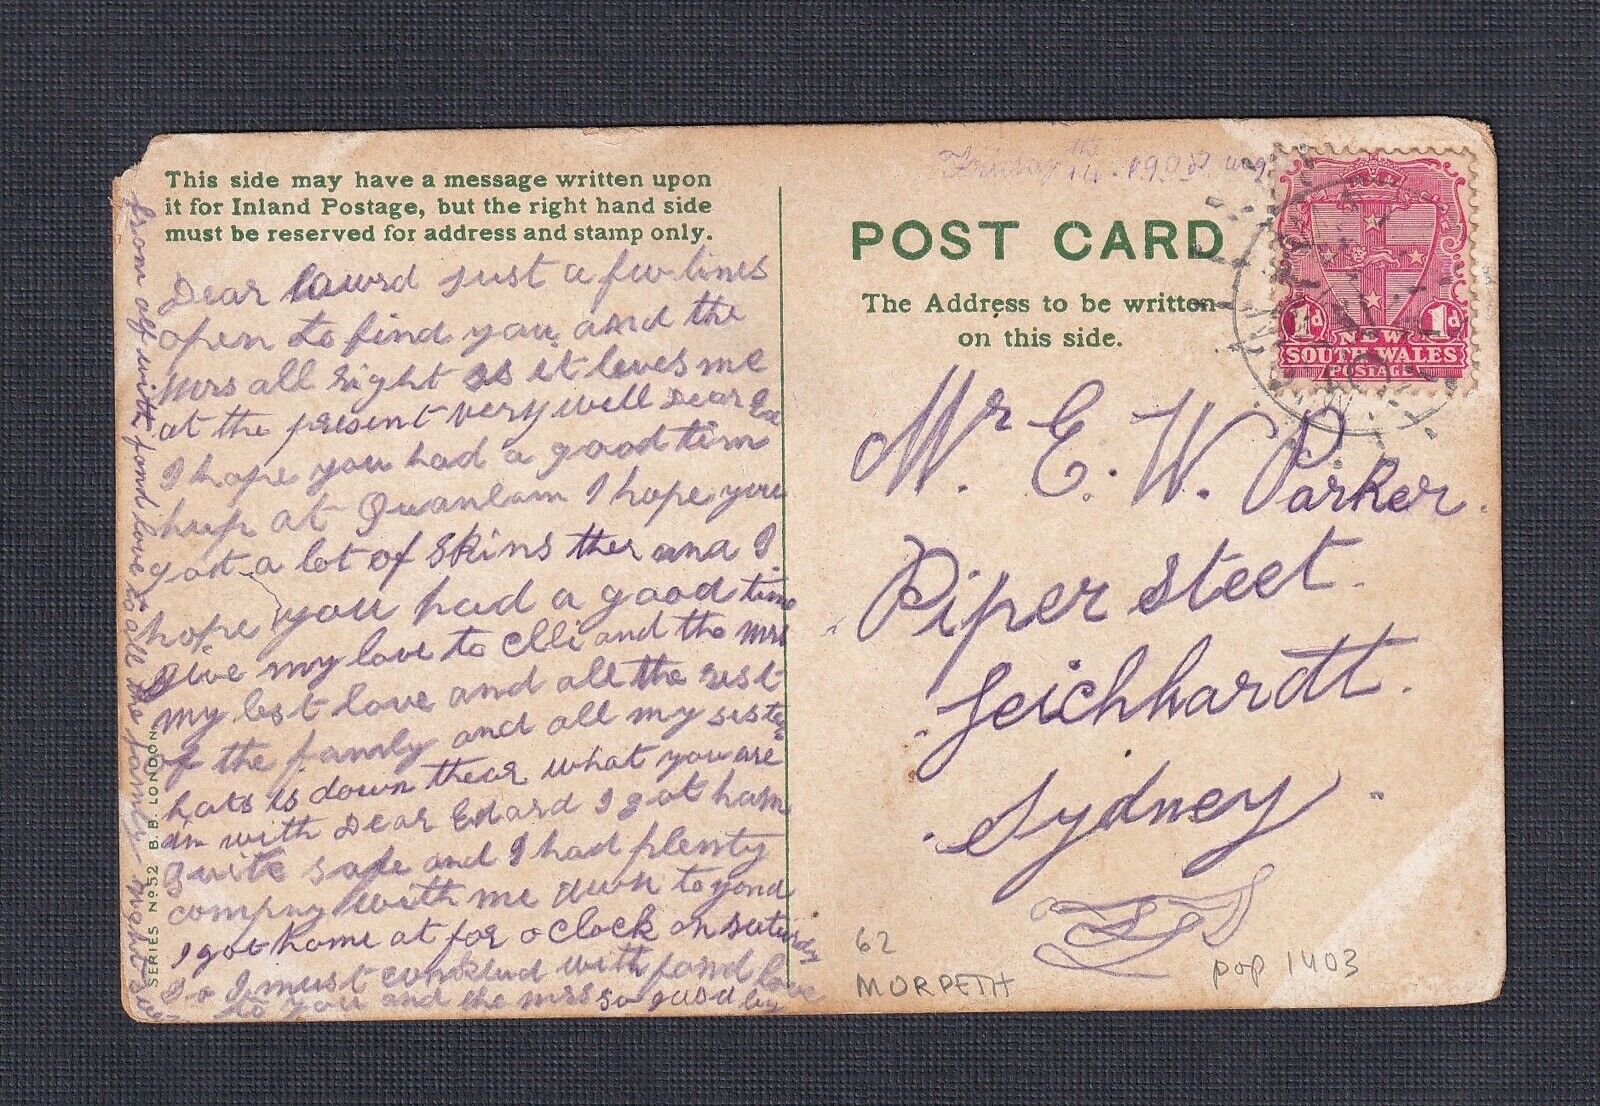 This side may have a message written upon
it for Inland Postage, but the right hand side
must be reserved for address and stamp only.
Dear just a few lines
open to find you and the
Mrs all right as it leves me
at the present very well Dear Ed
I hope you had a good tim
hup at Quanbam I hope you
got a lot of skins ther and I
hope you had a good time
give my love to and the Mrs
my best love and all the rest
of the family and all my siste
hats is down thear what you are
in with Dear Edard I got ham
quite safe and I had plenty
company with me down to yond
I got home at for o clock on
so I must conklud with fond love
to you and the mrs so good by
from off with fond love to all the family
SERIES No 52 B.B. LONDON
the
14
POST CARD
The Address to be written
on this side.
1d 1d
NEW
SOUTH WALES
POSTAGE
Mr. E. W. Parker.
Piper steet.
Leichhardt.
Sydney
62
MORPETH
pop 1403